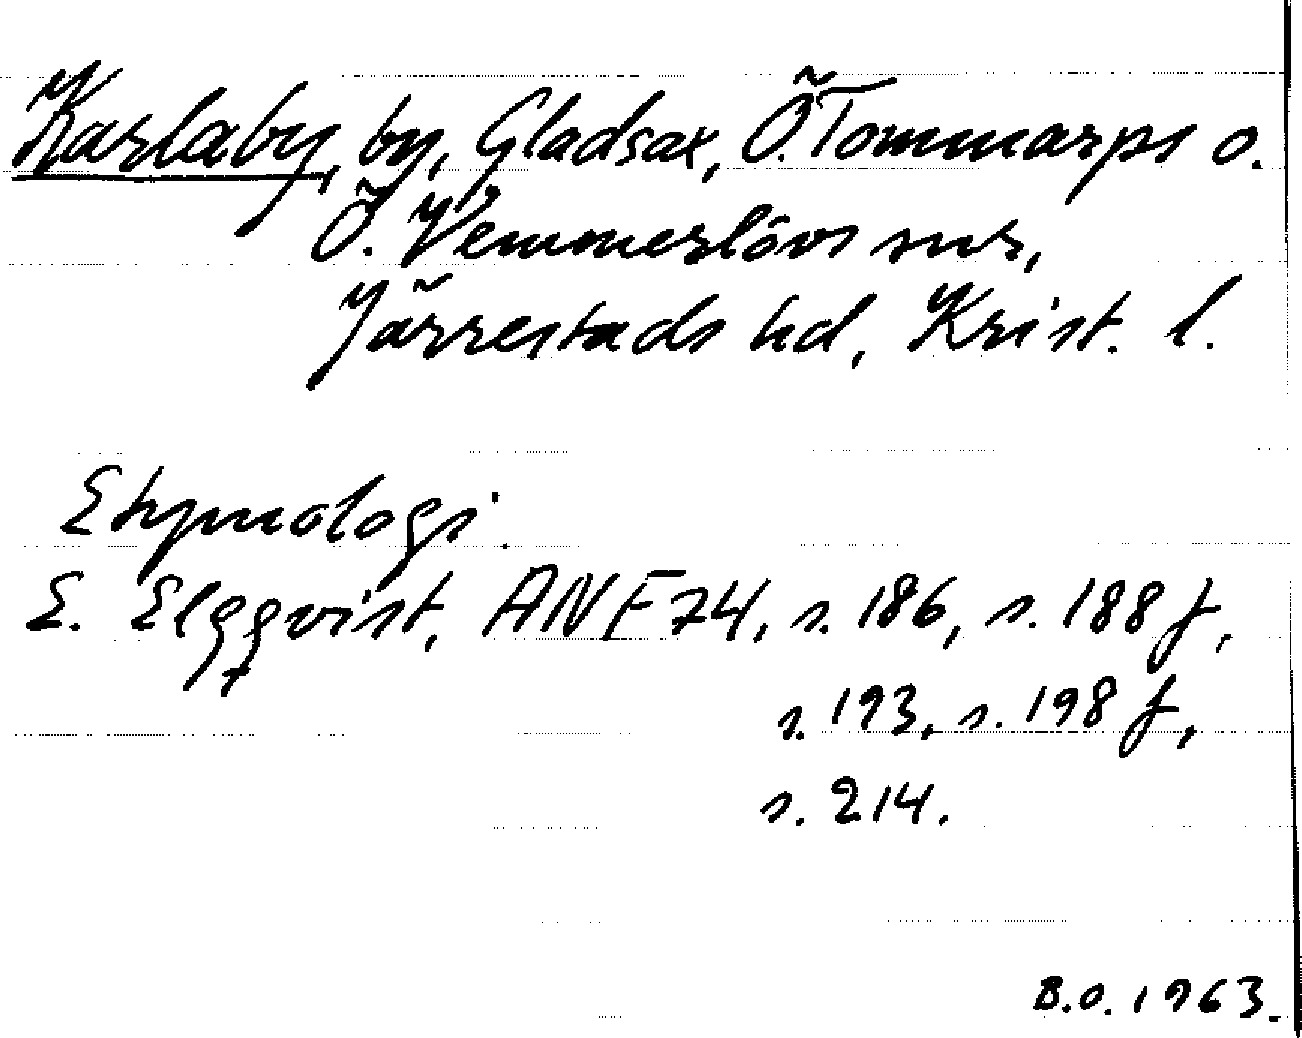 Karlaby, by, Gladsax, Ö. Tommarps o.
Ö. Vemmerlövs snr,
Järrestads hd, Krist. l.
Etymologi.
E. Elgqvist, ANF 74, s. 186, s. 188 f,
s. 193, s. 198 f,
s. 214.
B.O. 1963.